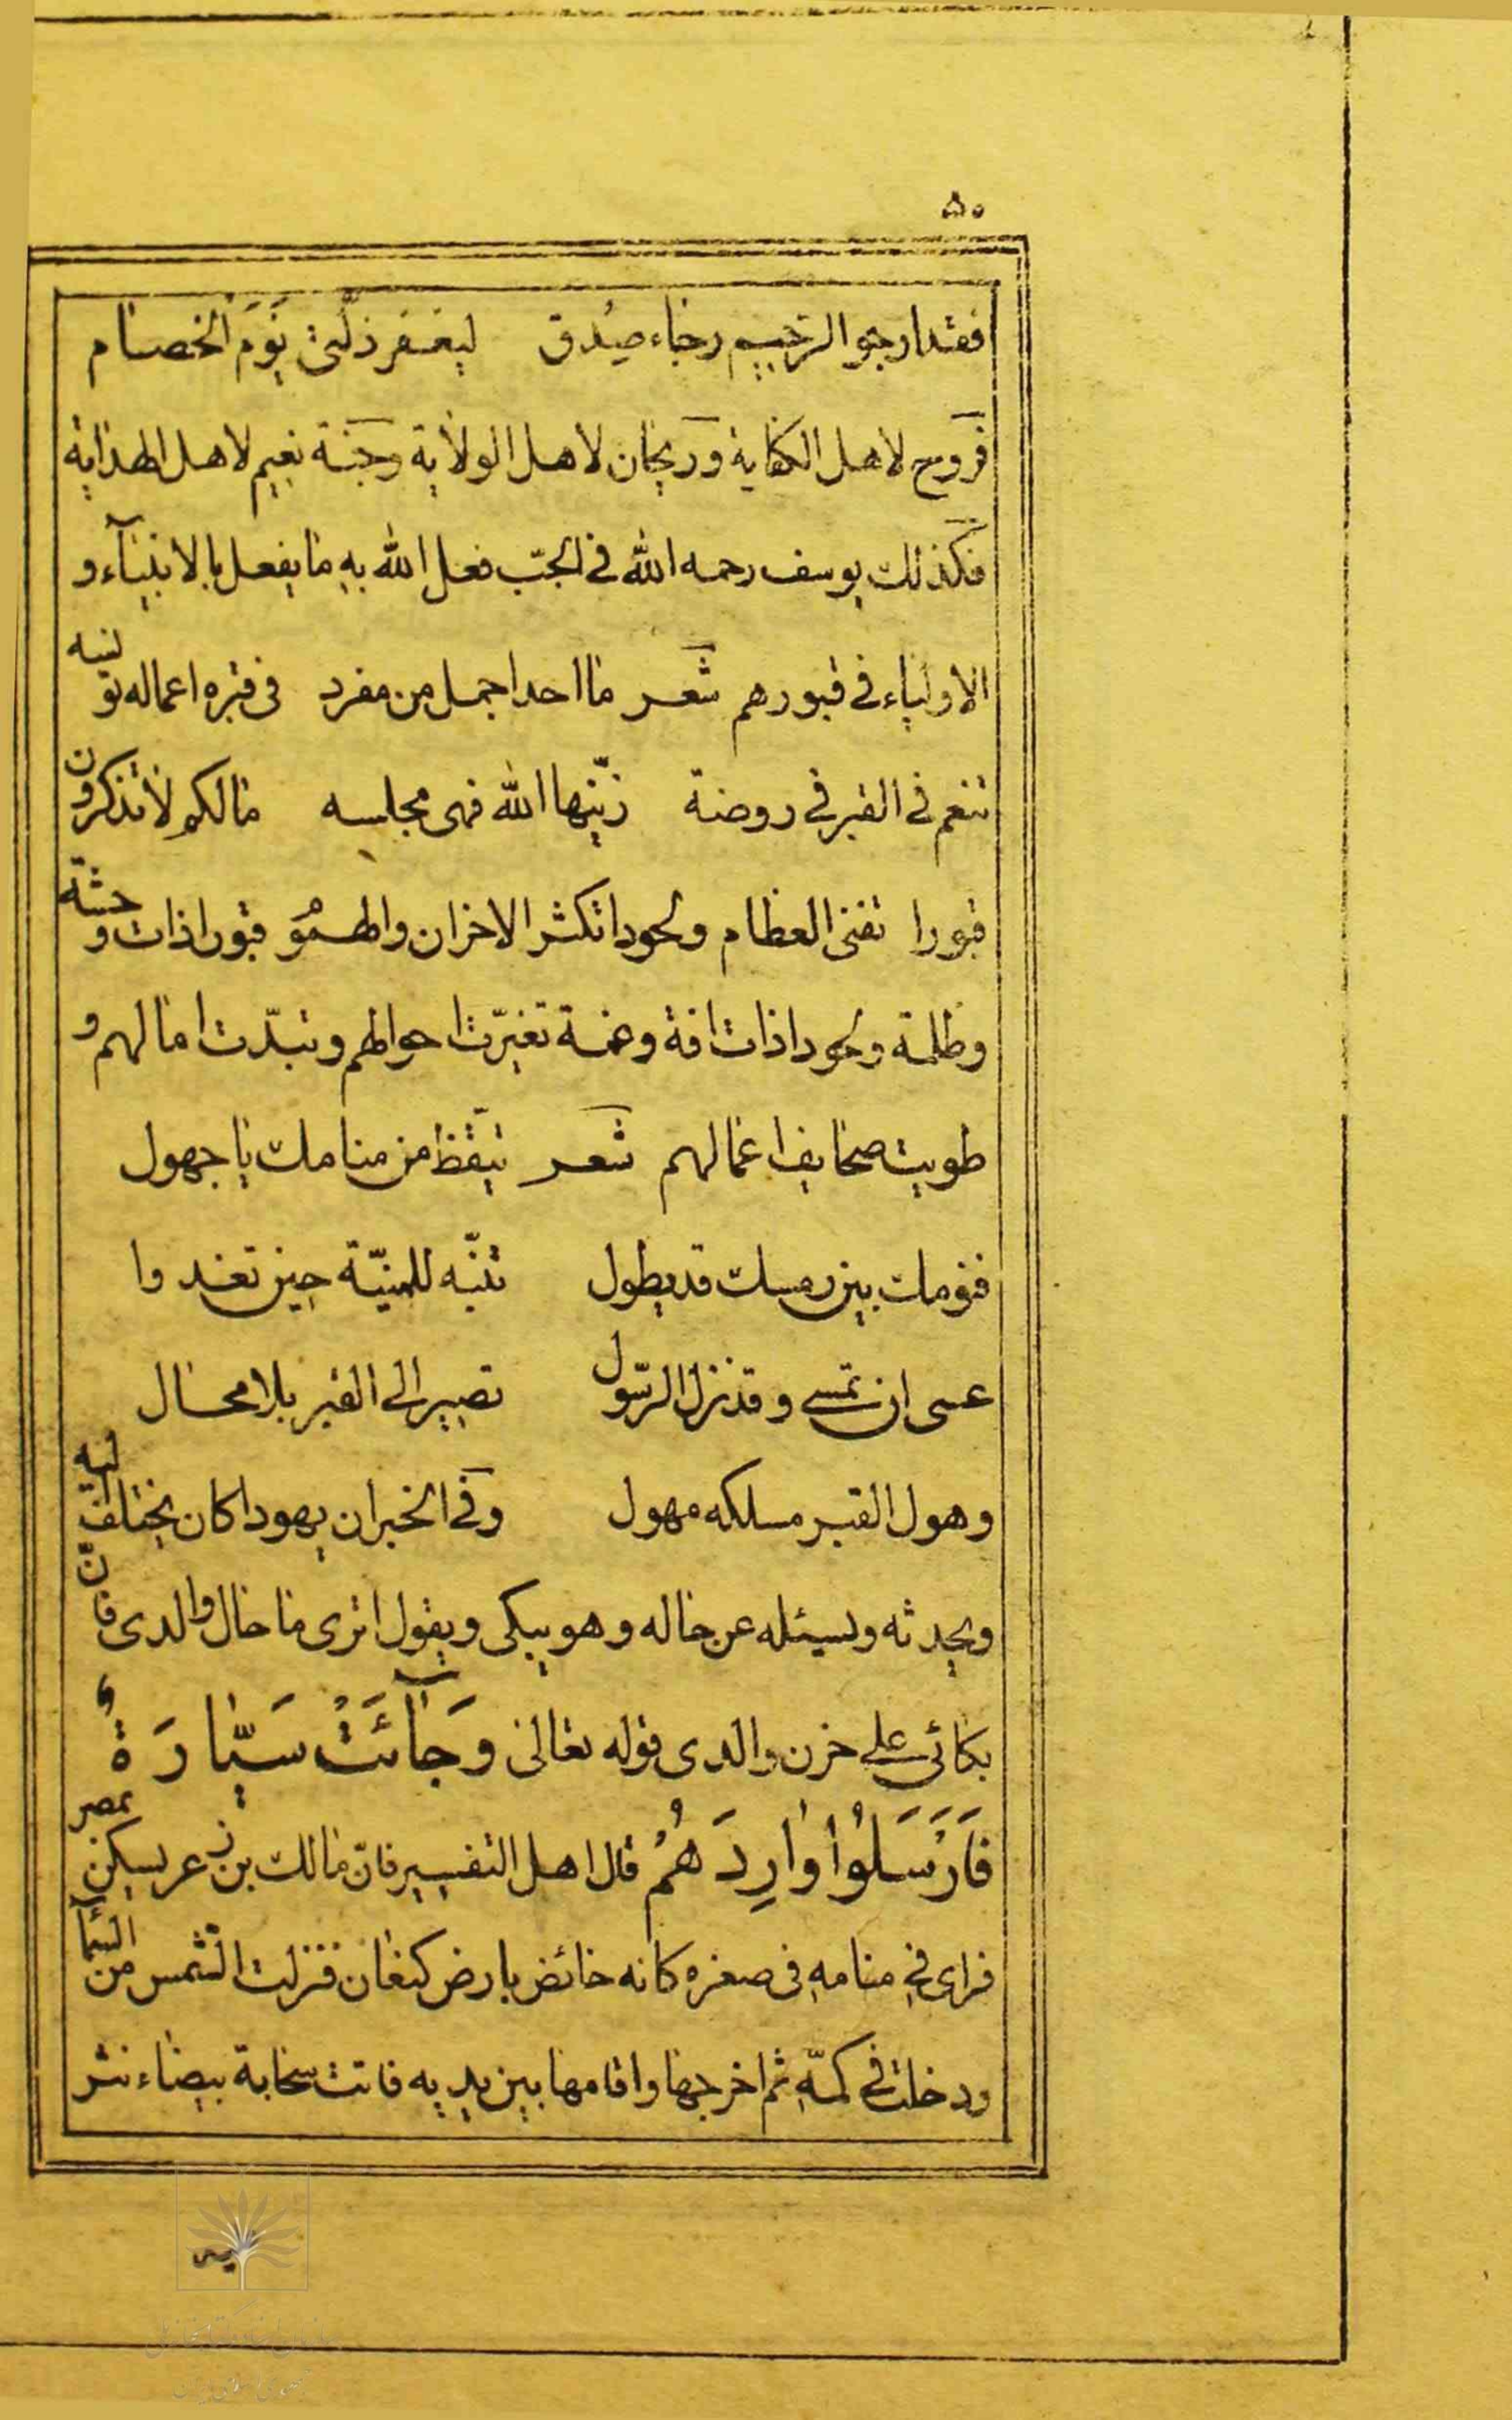 ٥٠
فقد ارجو الرّحیم رجاء صِدق لیغفر ذلّتی یَوَمَ الخصام
فَروح لاهل الکفایة وَریحان لاهل الولایة وجَنّة نعیم لاهل الهدایة
فکذلك یوسف رحمه الله فی الجبّ فعل الله به ما یفعل بالانبیآء و
الاولیاء فی قبورهم شعر ما احد اجمل من مفرد فی قبره اعماله تونسه
تنعم فی القبر فی روضة زیّنها الله فهی مجلسه مالکم لا تذکرون
قبورا تفنی العظام ولحودا تکثر الاحزان والهمُوم قبورا ذات وحشة
وظلمة ولحودا ذات افة وغمة تغیرّت احوالهم وتبدّت امالهم و
طویت صحایف اعمالهم شعر تیقّظ من منامك یا جهول
فنومك بین رمسك قد یطول تنبّه للمنیّة حین تغدوا
عسی ان تمسی وقد نزل الرّسول تصیر الی القبر بلا محال
وهول القبر مسلکه مهول وفی الخبر ان یهودا کان یختلف الیه
ویحدثه ویسئله عن حاله وهو یبکی ویقول اتری ما حال والدی فانّ
بکائی علی حزن والدی قوله تعالی وَجَآئَتْ سَیّارَةٌ
فَاَرْسَلُوْا وٰارِدَهُمْ قال اهل التفسیر فانّ مالك بن زعر یسکن بمصر
فرای فی منامه فی صغره کانه خائض بارض کنعان فنزلت الشّمس من السّمآء
ودخلت فی کمّه ثم اخرجها واقامها بین یدیه فاتت سحابة بیضاء نثر
یه